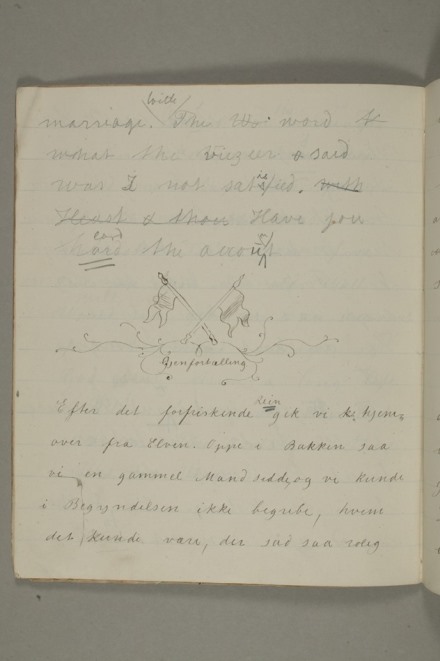 wille
marriage. The Wo: word &
what the viezeer & said
was I not satisfied. with
Heart & thou Have you
eard the acount
Gjenfortælling
Efter det forfriskende gik vi hjem-
over fra Elven. Oppe i Bakken saa
vi en gammel Mand sidde, og vi kunde
i Begyndelsen ikke begribe, hvem
det kunde være, der sad saa rolig